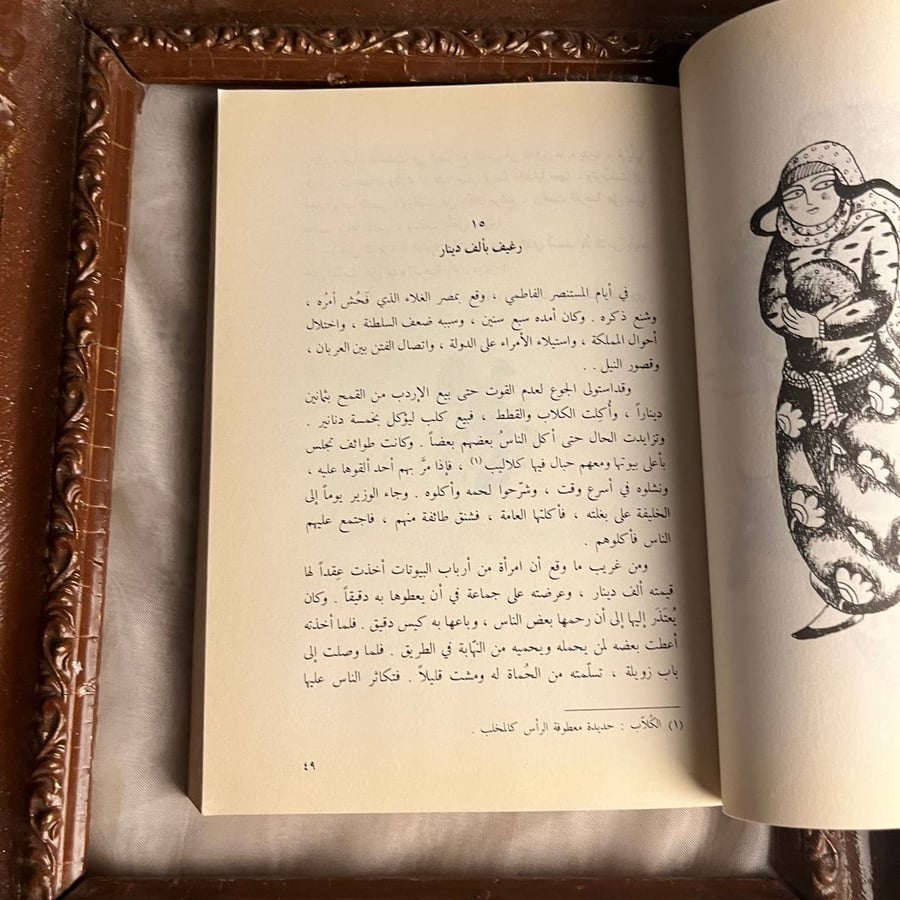 ١٥
رغيف بألف دينار
في أيام المستنصر الفاطمي ، وقع بمصر الغلاء الذي فَحُش أمرُه ،
وشنع ذكره . وكان أمده سبع سنين ، وسببه ضعف السلطنة ، واختلال
أحوال المملكة ، واستيلاء الأمراء على الدولة ، واتصال الفتن بين العربان ،
وقصور النيل . .
وقداستولى الجوع لعدم القوت حتى بيع الإردب من القمح بثمانين
ديناراً ، وأُكلِت الكلاب والقطط ، فبيع كلب ليؤكل بخمسة دنانير .
وتزايدت الحال حتى أكل الناسُ بعضهم بعضاً . وكانت طوائف تجلس
بأعلى بيوتها ومعهم حبال فيها كلاليب (١) ، فإذا مرَّ بهم أحد ألقوها عليه ،
ونشلوه في أسرع وقت ، وشرّحوا لحمه وأكلوه . وجاء الوزير يوماً إلى
الخليفة على بغلته ، فأكلتها العامة ، فشنق طائفة منهم ، فاجتمع عليهم
الناس فأكلوهم .
ومن غريب ما وقع أن امرأة من أرباب البيوتات أخذت عِقداً لها
قيمته ألف دينار ، وعرضته على جماعة في أن يعطوها به دقيقاً . وكان
يُعتَذَر إليها إلى أن رحمها بعض الناس ، وباعها به كيس دقيق . فلما أخذته
أعطت بعضه لمن يحمله ويحميه من النهّابة في الطريق . فلما وصلت إلى
باب زويلة ، تسلّمته من الحُماة له ومشت قليلاً . فتكاثر الناس عليها
(١) الكُلاّب : حديدة معطوفة الرأس كالمخلب .
٤٩